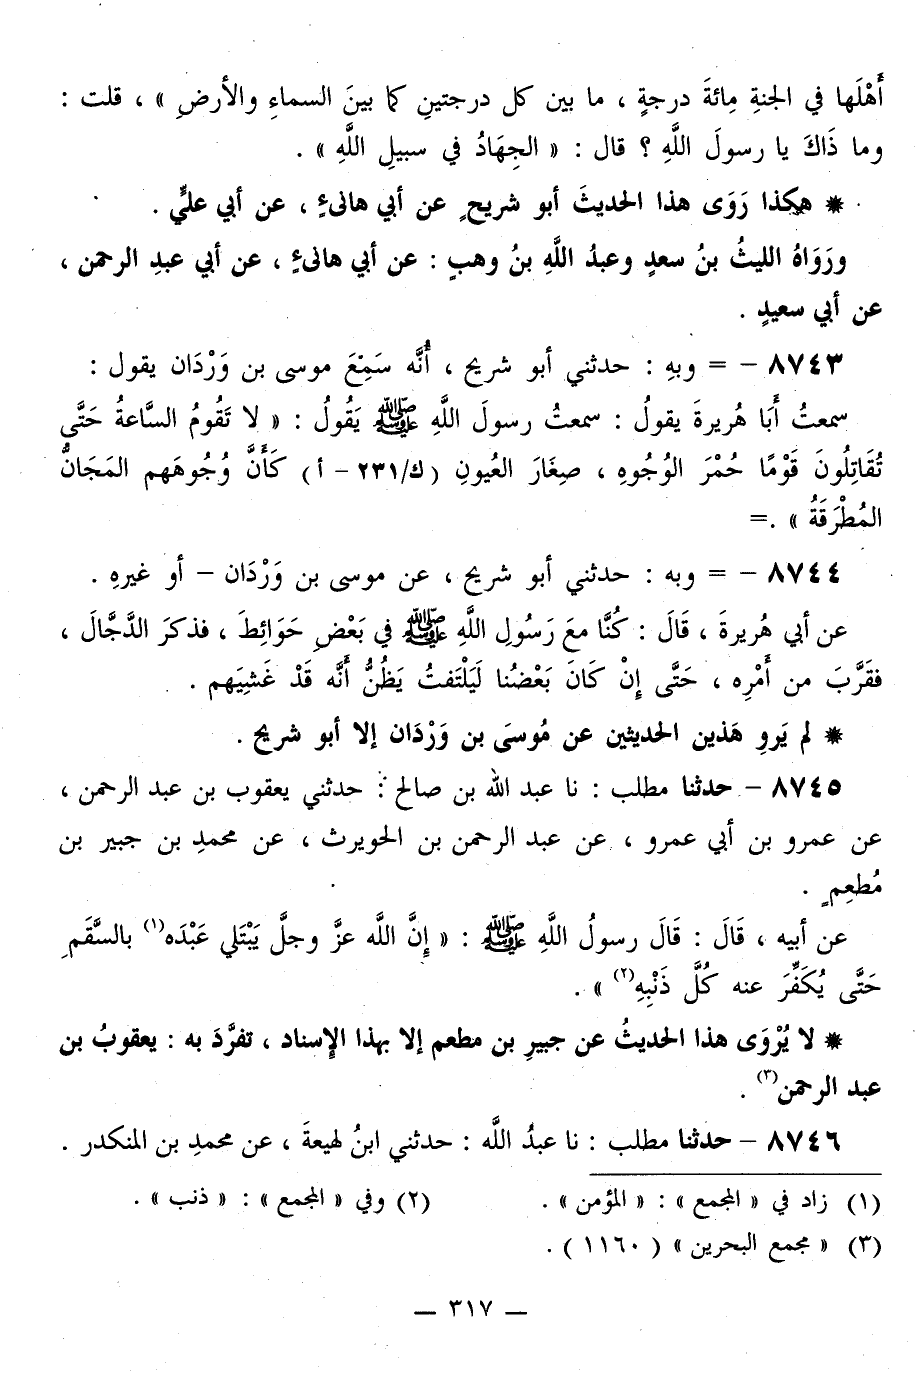 أَهْلَها في الجنةِ مِائةَ درجةٍ ، ما بين كل درجتينِ كما بينَ السماءِ والأرضِ » ، قلت :
وما ذَاكَ يا رسولَ اللَّهِ ؟ قال : « الجِهَادُ في سبيلِ اللَّهِ » .
* هكذا رَوَى هذا الحديثَ أبو شريحٍ عن أبي هانئٍ ، عن أبي عليٍّ .
ورَوَاهُ الليثُ بنُ سعدٍ وعبدُ اللَّهِ بنُ وهبٍ : عن أبي هانئٍ ، عن أبي عبدِ الرحمن ،
عن أبي سعيدٍ .
٨٧٤٣ – = وبهِ : حدثني أبو شريح ، أُنَّه سَمِعَ موسى بن وَرْدَان يقول :
سمعتُ أَبَا هُريرةَ يقولُ : سمعتُ رسولَ اللَّهِ ﷺ يَقُولُ : « لا تَقُومُ السَّاعةُ حَتَّى
تُقَاتِلُونَ قَوْمًا حُمْرَ الوُجُوهِ ، صِغَارَ العُيونِ (ك/٢٣١ – أ) كَأَنَّ وُجُوهَهم المَجَانُّ
المُطْرَقَةُ » .=
٨٧٤٤ – = وبه : حدثني أبو شريح ، عن موسى بن وَرْدَان – أو غيرهِ .
عن أبي هُريرةَ ، قَالَ : كُنَّا معَ رَسُولِ اللَّهِ ﷺ في بَعْضِ حَوَائِطَ ، فذكرَ الدَّجَّالَ ،
فقَرَّبَ من أَمْرِه ، حَتَّى إِنْ كَانَ بَعْضُنا لَيَلْتَفتُ يَظُنُّ أَنَّه قَدْ غَشِيَهم .
* لم يَروِ هَذين الحديثين عن مُوسَى بن وَرْدَان إلا أبو شريح .
٨٧٤٥ – حدثنا مطلب : نا عبد الله بن صالح : حدثني يعقوب بن عبد الرحمن ،
عن عمرو بن أبي عمرو ، عن عبد الرحمن بن الحويرث ، عن محمدِ بن جبير بن
مُطعِمٍ .
عن أبيه ، قَالَ : قَالَ رسولُ اللَّهِ ﷺ : « إِنَّ اللَّه عزَّ وجلَّ يَبْتَلي عَبْدَه(١) بالسَّقَمِ
حَتَّى يُكَفِّرَ عنه كُلَّ ذَنْبِهِ(٢) » .
* لا يُرْوَى هذا الحديثُ عن جبيرِ بن مطعم إلا بهذا الإِسناد ، تفرَّدَ به : يعقوبُ بن
عبد الرحمن(٣) .
٨٧٤٦ – حدثنا مطلب : نا عبدُ اللَّه : حدثني ابنُ لهيعةَ ، عن محمدِ بن المنكدر .
(١) زاد في « المجمع » : « المؤمن » . (٢) وفي « المجمع » : « ذنب » .
(٣) « مجمع البحرين » ( ١١٦٠ ) .
— ٣١٧ —